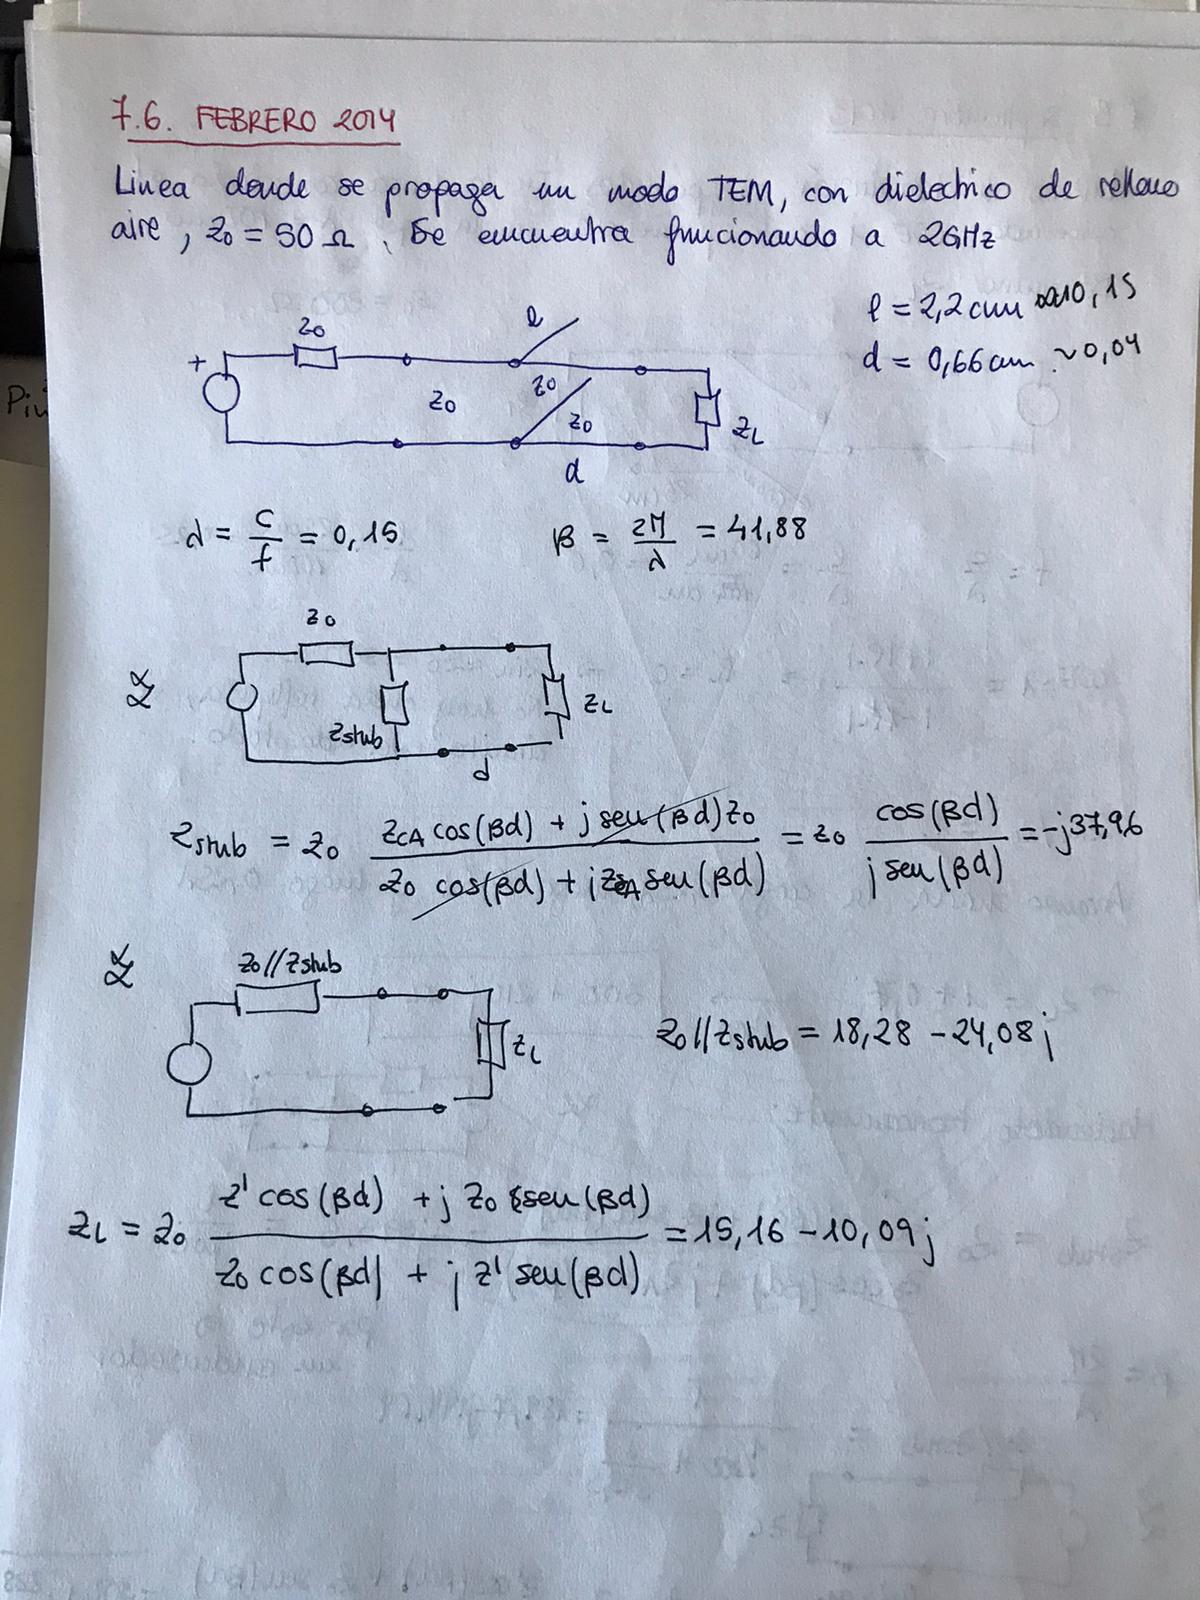 7.6. FEBRERO 2014
Linea donde se propaga un modo TEM, con dielectrico de relleno
aire, Z0 = 50 Ω. Se encuentra funcionando a 2GHz
l = 2,2 cm 0,15
d = 0,66 cm ~ 0,04
Z0
l
+
Z0
Z0
Z0
ZL
d
λ = c/f = 0,15
β = 2π/λ = 41,88
Z0
Zstub
ZL
d
Zstub = Z0 (ZCA cos(βd) + j sen(βd) Z0)/(Z0 cos(βd) + j ZCA sen(βd)) = Z0 cos(βd)/(j sen(βd)) = -j37,96
Z0//Zstub
ZL
Z0//Zstub = 18,28 - 24,08j
ZL = Z0 (Z' cos(βd) + j Z0 sen(βd))/(Z0 cos(βd) + j Z' sen(βd)) = 15,16 - 10,09j